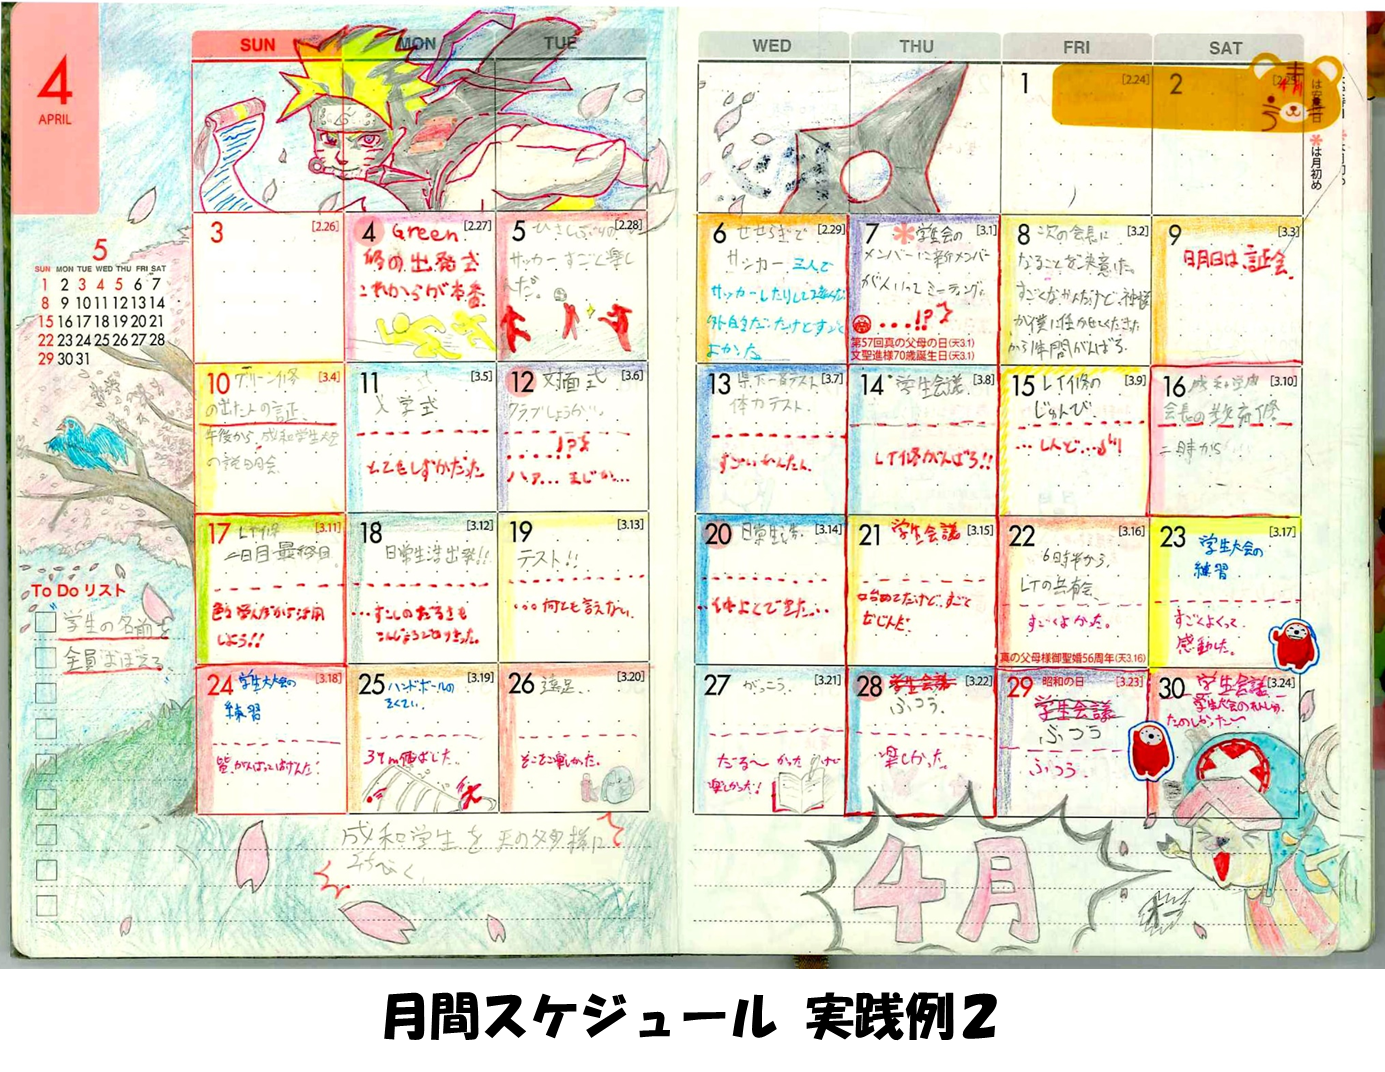 4
APRIL
SUN MON TUE WED THU FRI SAT
1 [2.24]
2
は安侍日
*は月初め
5
SUN MON TUE WED THU FRI SAT
1 2 3 4 5 6 7
8 9 10 11 12 13 14
15 16 17 18 19 20 21
22 23 24 25 26 27 28
29 30 31
3 [2.26]
4 Green [2.27]
修の出発式
これからが本番
5 ひさしぶりの [2.28]
サッカーすごく楽し
んだ。
6 せせらぎで [2.29]
サッカー 三人で
サッカーしたりして遊んだ
よかった
7 *学生会の [3.1]
メンバーに新メンバー
が入ってミーティング。
...!?
第57回真の父母の日(天3.1)
文聖進様70歳誕生日(天3.1)
8 次の会長に [3.2]
なることを決意した。
すごくなやんだけど、神様
が僕に任せてくださた
から1年間がんばろう。
9 [3.3]
明日は証会
10 グリーン修 [3.4]
の出た人の証、
午後から、成和学生大会
の説明会
11 [3.5]
入学式
とてもしずかだった
12 対面式 [3.6]
クラブしょうかい
....!?
ハァ... まじか...
13 県下一斉テスト [3.7]
体力テスト.
すごいかんたん.
14 学生会議 [3.8]
LT修がんばろう!!
15 LT修の [3.9]
じゅんび.
...しんど...
16 成和学生 [3.10]
会長の教育修
二時から
17 LT修 [3.11]
二日目最終日
色々学んだから活用
しよう!!
18 [3.12]
日常生活出発!!
19 [3.13]
テスト!!
...何とも言えない.
20 日常生活. [3.14]
21 学生会議 [3.15]
22 [3.16]
6時半から.
LTの共有会.
すごくよかった。
真の父母様御聖婚56周年(天3.16)
23 [3.17]
学生大会の
練習
すごくよくって
感動した。
24 学生大会の [3.18]
練習
皆、がんばっていけんだ!
25 ハンドボールの [3.19]
37m飛ばした。
26 遠足 [3.20]
そこそこ楽しかった。
27 がっこう. [3.21]
楽しかった!
28 学生会議 [3.22]
ふつう
楽しかった。
29 昭和の日 [3.23]
学生会議
ふつう
ふつう
30 学生会議 [3.24]
学生大会のれんしゅう
たのしかった〜
To Do リスト
学生の名前を
全員おぼえる。
成和学生を天の父母様に
4月
月間スケジュール 実践例2